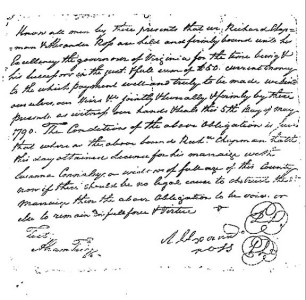 Know all men by these presents that we Richard Chap-
man & Alexander Ross are held and firmly bound unto his
Excellency the governor of Virginia for the time being &
his successors in the just & full sum of £50. current money
to the which payment well and truly to be made we bind
ourselves, our Heirs &c jointly & severally & firmly by these
presents as witness our hands & seals this 5th Day of May
1790. The Condition of the above obligation is such
that where as the above Richd Chapman hath
this day obtained license for his marriage with
Susanna of full age of this County
now if there should be no legal cause to obstruct the sd
marriage then the above obligation to be void. or
else to remain in full force & virtue
Test
Alexand
ross